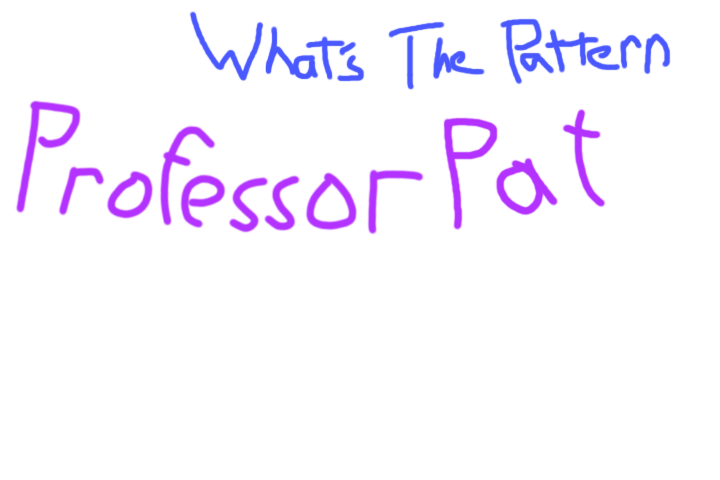 What's The Pattern
Professor Pat